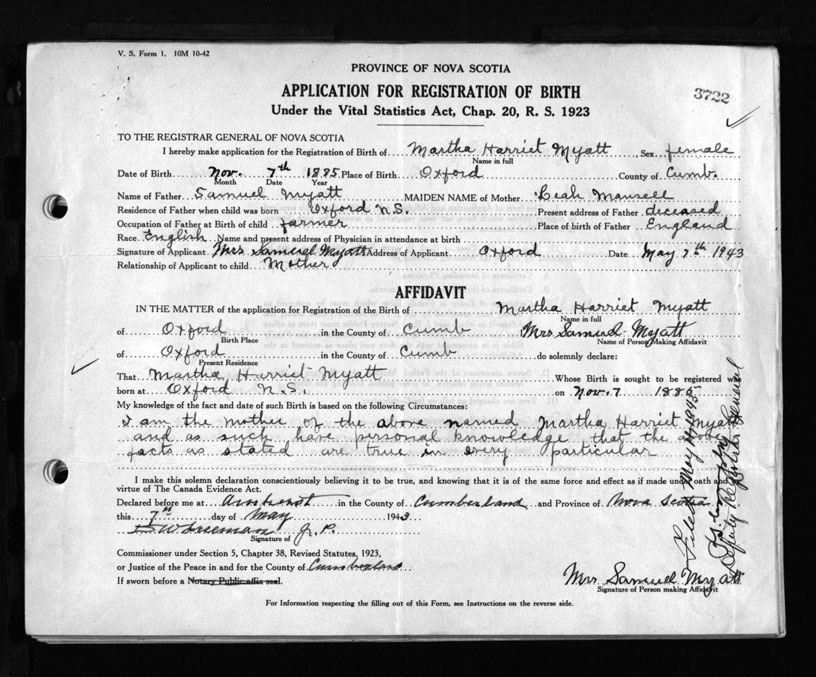 V. S. Form 1. 10M 10-42
PROVINCE OF NOVA SCOTIA
APPLICATION FOR REGISTRATION OF BIRTH
3722
Under the Vital Statistics Act, Chap. 20, R. S. 1923
TO THE REGISTRAR GENERAL OF NOVA SCOTIA
I hereby make application for the Registration of Birth of Martha Harriet Myatt Sex female
Name in full
Date of Birth Nov. 7th 1885 Place of Birth Oxford County of Cumb.
Month Date Year
Name of Father Samuel Myatt MAIDEN NAME of Mother Leah Mansell
Residence of Father when child was born Oxford N.S. Present address of Father deceased
Occupation of Father at Birth of child farmer Place of birth of Father England
Race English Name and present address of Physician in attendance at birth
Signature of Applicant Mrs Samuel Myatt Address of Applicant Oxford Date May 7th 1943
Relationship of Applicant to child Mother
AFFIDAVIT
IN THE MATTER of the application for Registration of the Birth of Martha Harriet Myatt
Name in full
of Oxford in the County of Cumb Mrs Samuel Myatt
Birth Place Name of Person Making Affidavit
of Oxford in the County of Cumb do solemnly declare:
Present Residence
That Martha Harriet Myatt Whose Birth is sought to be registered was
born at Oxford N.S. on Nov. 7 1885
My knowledge of the fact and date of such Birth is based on the following Circumstances:
I am the mother of the above named Martha Harriet Myatt
and as such have personal knowledge that the above
facts as stated are true in every particular
I make this solemn declaration conscientiously believing it to be true, and knowing that it is of the same force and effect as if made under oath and
virtue of The Canada Evidence Act.
Declared before me at Amherst in the County of Cumberland and Province of Nova Scotia
this 7th day of May 1943
J.P.
Signature of
Commissioner under Section 5, Chapter 38, Revised Statutes, 1923,
or Justice of the Peace in and for the County of Cumberland
If sworn before a Notary Public affix seal.
Mrs Samuel Myatt
Signature of Person making Affidavit
For Information respecting the filling out of this Form, see Instructions on the reverse side.
Deputy Registrar General